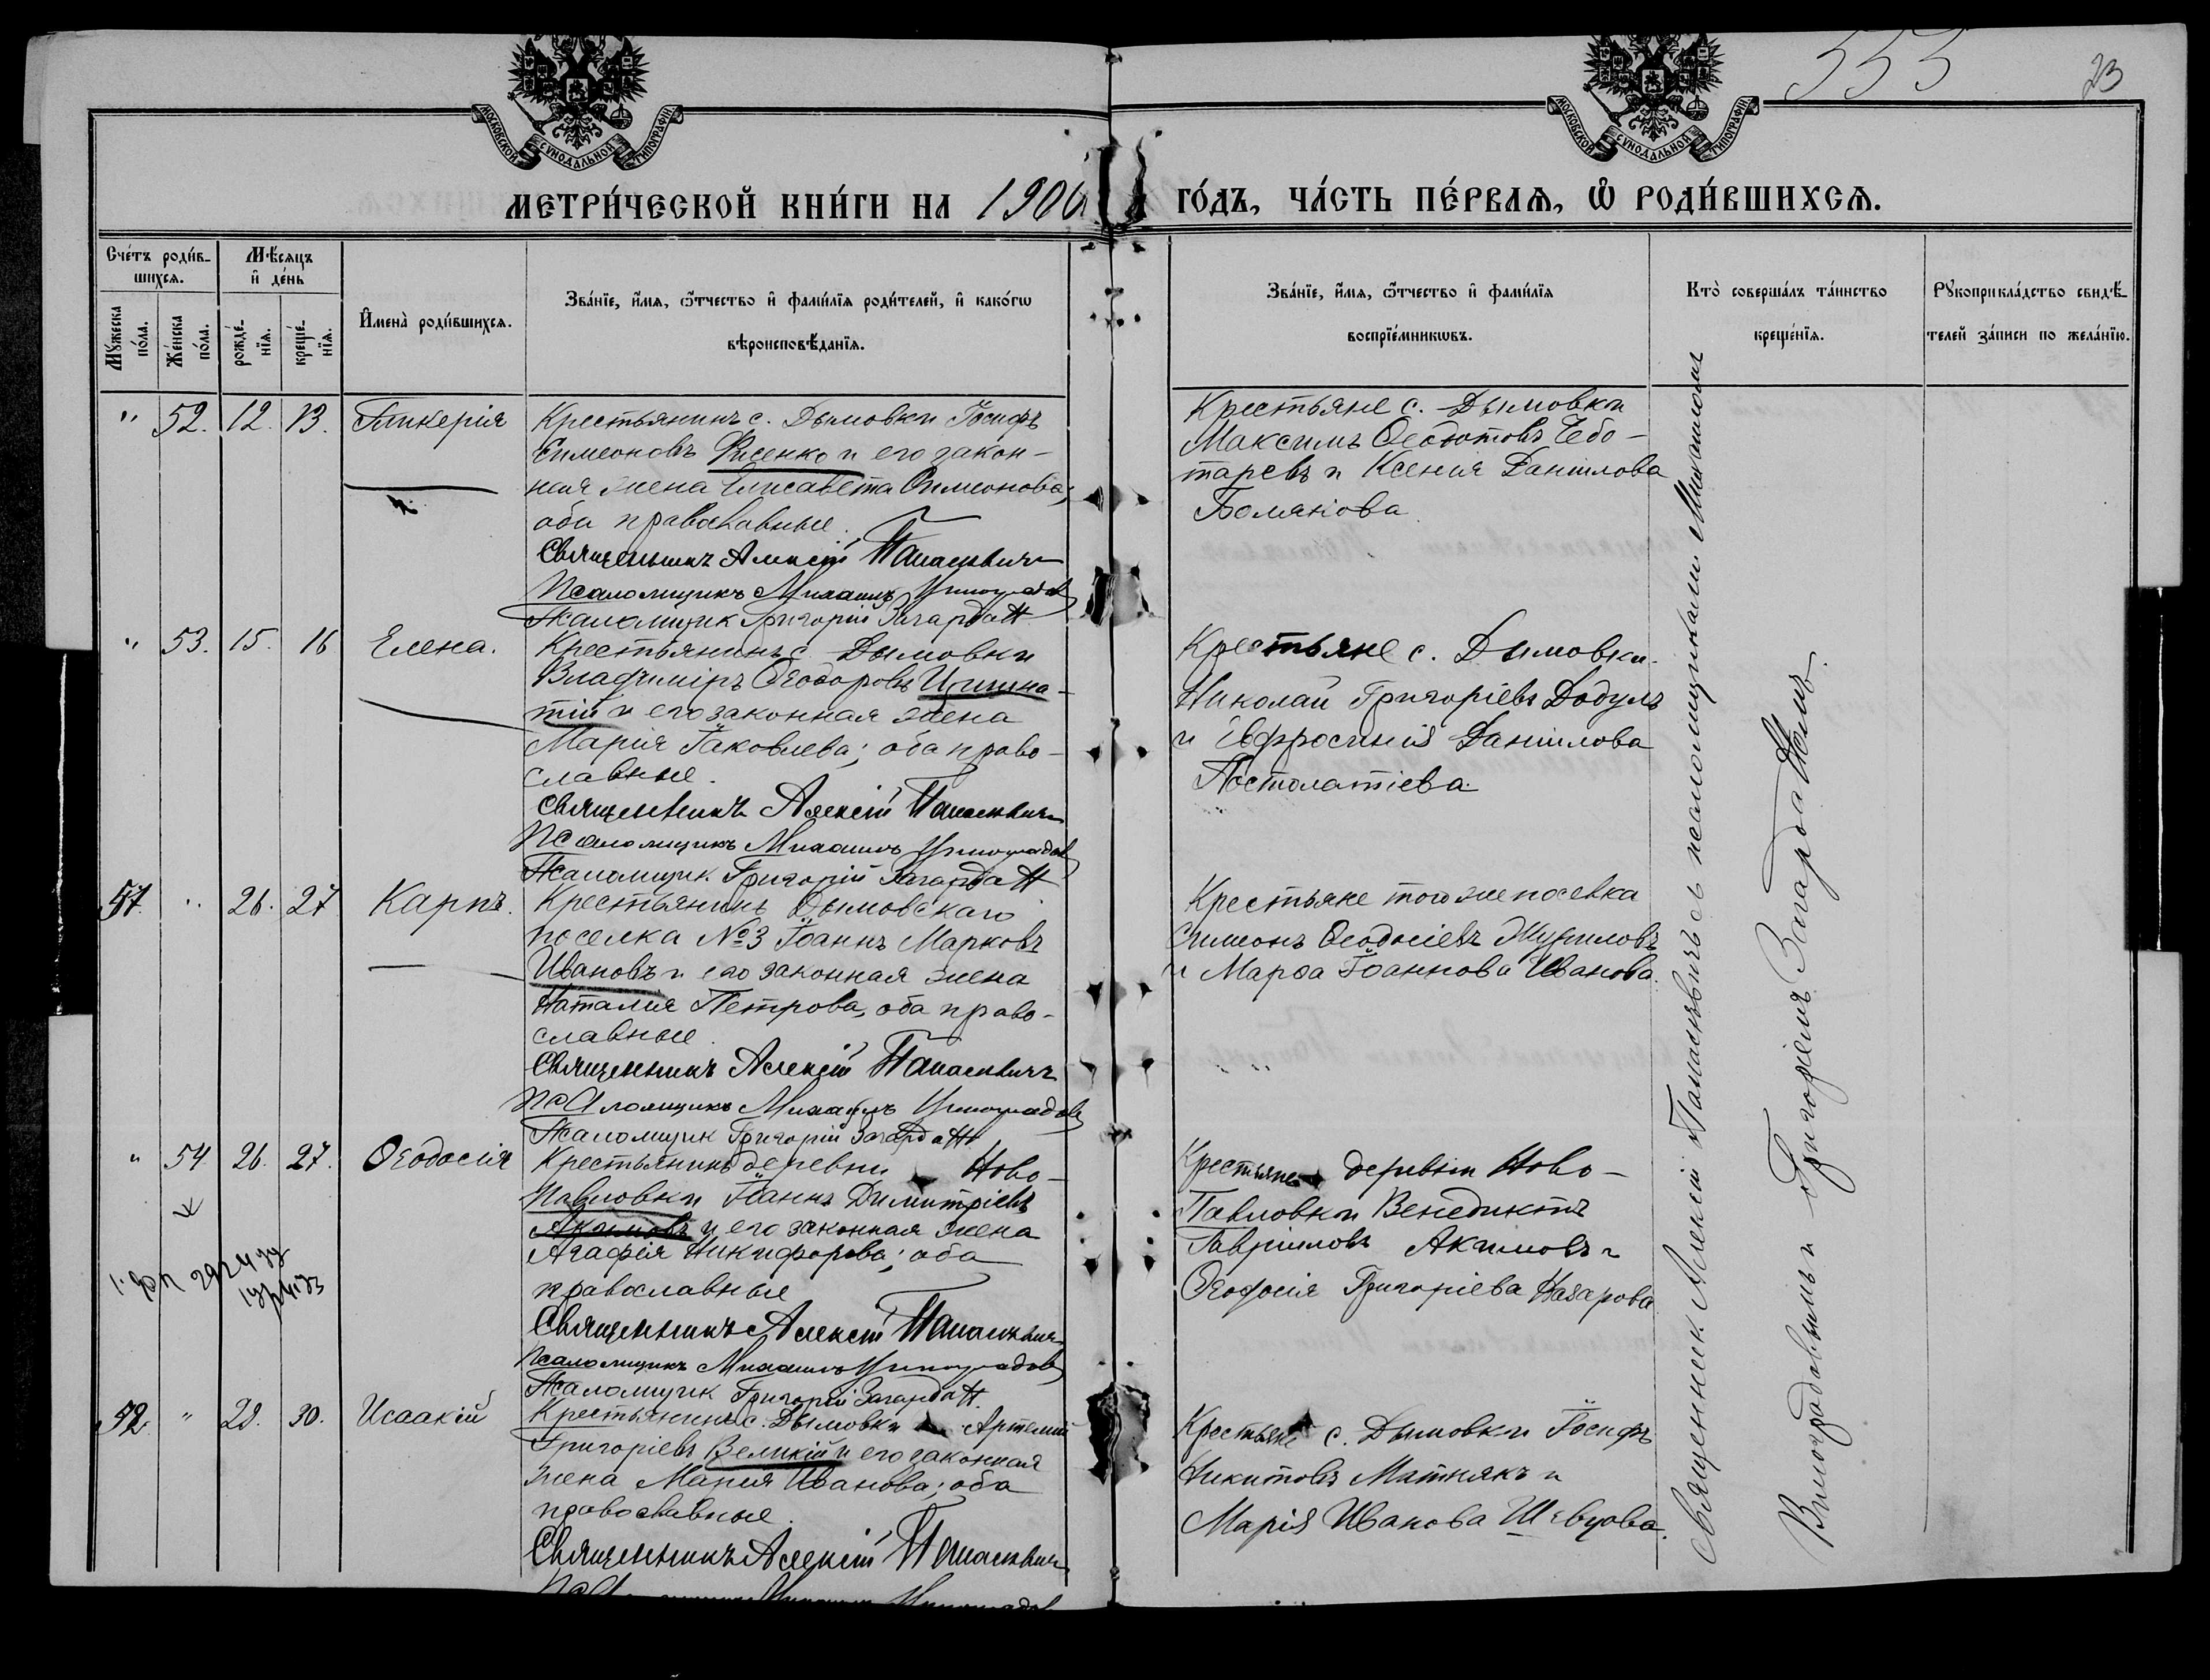 553
23
МОСКОВСКОЙ СѴНОДАЛЬНОЙ ТИПОГРАФІИ
МОСКОВСКОЙ СѴНОДАЛЬНОЙ ТИПОГРАФІИ
МЕТРИ́ЧЕСКОЙ КНИ́ГИ НА 1906 ГО́ДЪ, ЧА́СТЬ ПЕ́РВАЯ, Ѡ РОДИ́ВШИХСЯ.
Сче́тъ роди́в-
шихся.
Мѣ́сяцъ
и҆ де́нь
Мꙋ́жеска
по́ла.
Же́нска
по́ла.
рожде́-
нїя.
креще́-
нїя.
И҆мена̀ роди́вшихся.
Зва́нїе, и҆́мя, ѻ҆́тчество и҆ фами́лїя роди́телей, и҆ како́гѡ
вѣроисповѣ́данїя.
Зва́нїе, и҆́мя, ѻ҆́тчество и҆ фами́лїя
воспрїе́мникѡвъ.
Кто̀ соверша́лъ та́инство
креще́нїя.
Рꙋкоприкла́дство свидѣ́-
телей за́писи по жела́нїю.
" 52. 12. 13. Гликерія
Крестьянинъ с. Дымовки Іосифъ
Симеоновъ Фисенко и его закон-
ная жена Елисавета Симеонова;
оба православные.
Священникъ Алексій Панасевичъ
Псаломщикъ Михаилъ Виноградовъ
Псаломщик Григорій Загарда
Крестьяне с. Дымовки
Максимъ Ѳеодотовъ Чебо-
таревъ и Ксенія Даніилова
" 53. 15. 16 Елена.
Крестьянинъ с. Дымовки
Владиміръ Ѳеодоровъ
тій и его законная жена
Марія Іаковлева; оба право-
славные.
Священникъ Алексій Панасевичъ
Псаломщикъ Михаилъ Виноградовъ
Псаломщик Григорій Загарда
Крестьяне с. Дымовки
Николай Григоріевъ Додулъ
и Евфросинія Даніилова
Постолатіева.
51. " 26. 27 Карпъ.
Крестьянинъ Дымовскаго
поселка №3 Іоаннъ Марковъ
Ивановъ и его законная жена
Наталія Петрова, оба право-
славные.
Священникъ Алексій Панасевичъ
Псаломщикъ Михаилъ Виноградовъ
Псаломщик Григорій Загарда
Крестьяне того же поселка
Симеонъ Ѳеодосіевъ
и Марѳа Іоаннова Иванова.
" 54 26. 27. Ѳеодосія
Крестьянинъ деревни Ново-
Павловки Іоаннъ Димитріевъ
Акимовъ и его законная жена
Агафія Никифорова; оба
православные
Священникъ Алексій Панасевичъ
Псаломщикъ Михаилъ Виноградовъ
Псаломщик Григорій Загарда
Крестьяне деревни Ново-
Павловки Венедиктъ
Гавриловъ Акимовъ и
Ѳеодосія Григоріева Назарова
52. " 28. 30. Исаакій
Крестьянинъ с. Дымовки Артемій
Григоріевъ Великій и его законная
жена Марія Иванова; оба
православные.
Священникъ Алексій Панасевичъ
Крестьяне с. Дымовки Іосифъ
Никитовъ Матнякъ и
Марія Иванова Шевцова.
Священник Алексій Панасевичъ съ псаломщиками Михаиломъ
Виноградовымъ и Григоріемъ Загарда